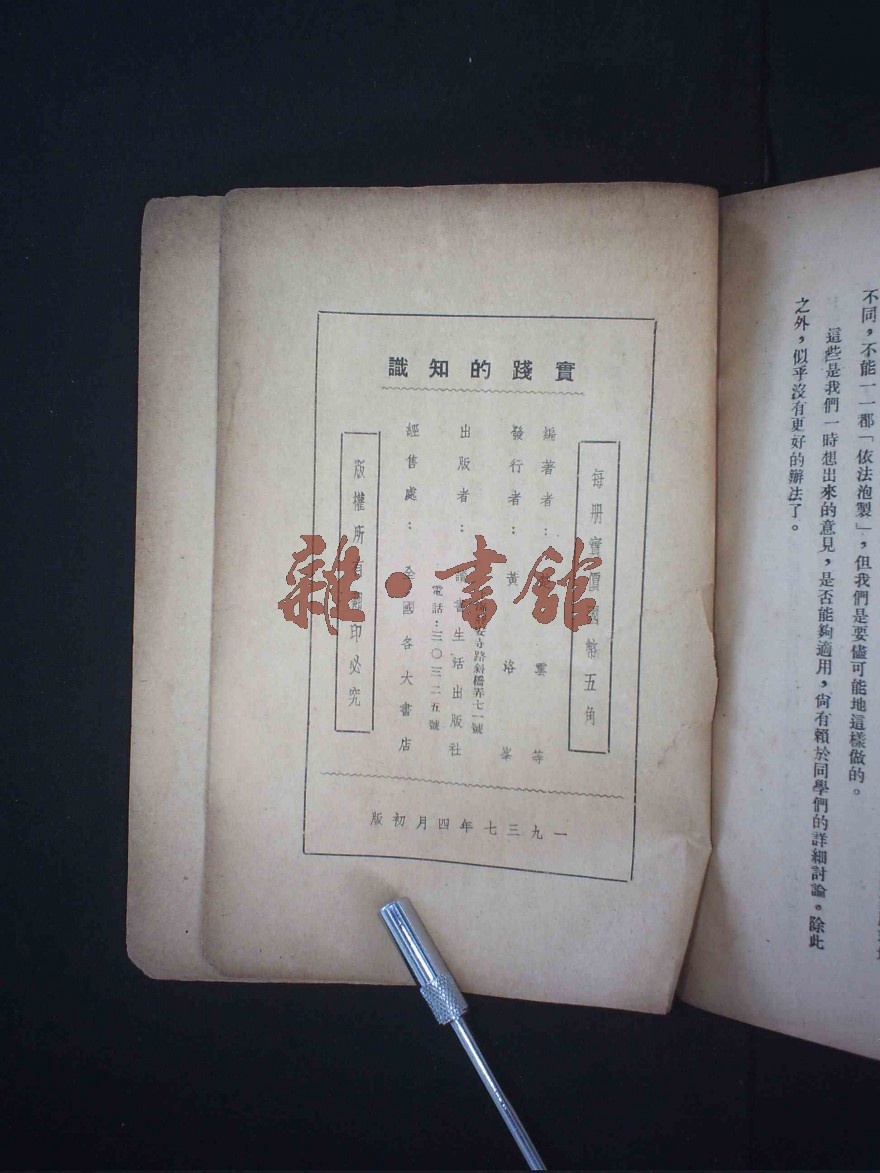 不同，不能一一都「依法泡製」，但我們是要儘可能地這樣做的。
這些是我們一時想出來的意見，是否能夠適用，尙有賴於同學們的詳細討論。除此
之外，似乎沒有更好的辦法了。
實踐的知識
每册實價國幣五角
編著者：雲等
發行者：黃洛峯
出版者：讀書生活出版社
安寺路斜橋弄七一號
電話：三〇三二五號
經售處：全國各大書店
版權所有翻印必究
一九三七年四月初版
雜·書館